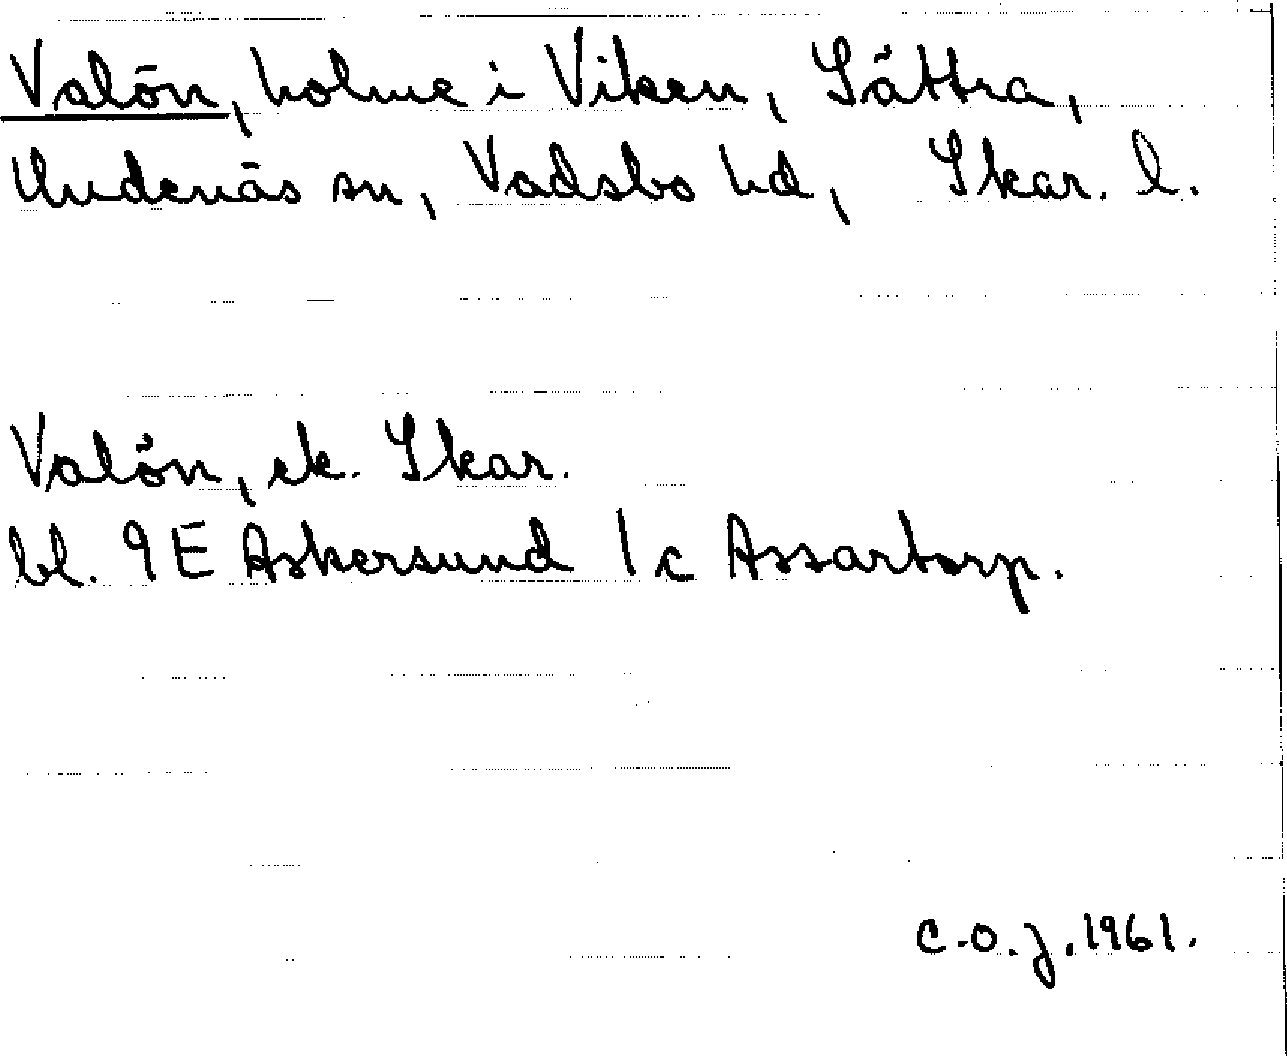 Valön, holme i Viken, Sättra,
Undenäs sn, Vadsbo hd, Skar. l.
Valön, ek. Skar.
bl. 9E Askersund 1c Assartorp.
C.O.J. 1961.